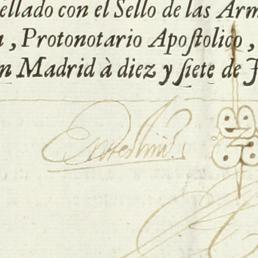 ellado con el Sello de las Arm
, Protonotario Apostolico ,
n Madrid à diez y siete de